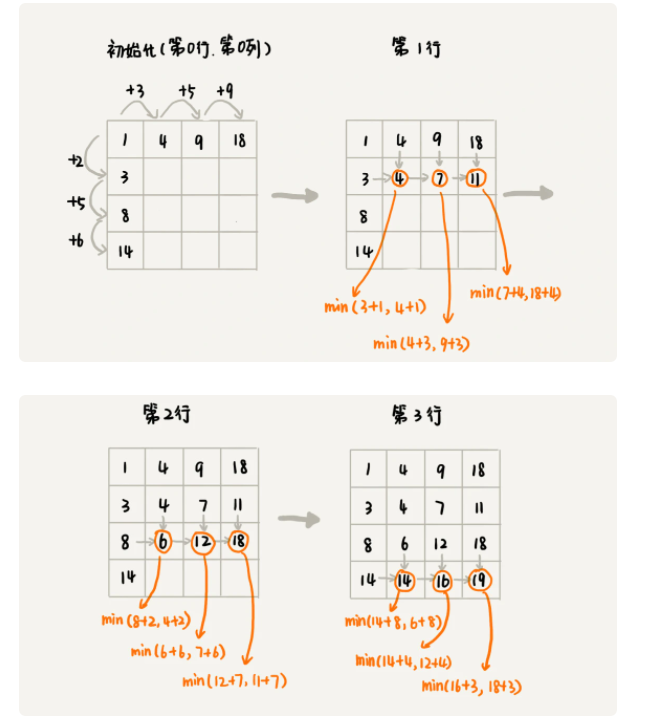 初始化(第0行.第0列)
第1行
+3 +5 +9
1 4 9 18
+2
3
+5
8
+6
14
1 4 9 18
3 4 7 11
8
14
min(3+1, 4+1)
min(7+4,18+4)
min(4+3, 9+3)
第2行
第3行
1 4 9 18
3 4 7 11
8 6 12 18
14
min(8+2,4+2)
min(6+6, 7+6)
min(12+7, 11+7)
1 4 9 18
3 4 7 11
8 6 12 18
14 14 16 19
min(14+8, 6+8)
min(14+4,12+4)
min(16+3, 18+3)